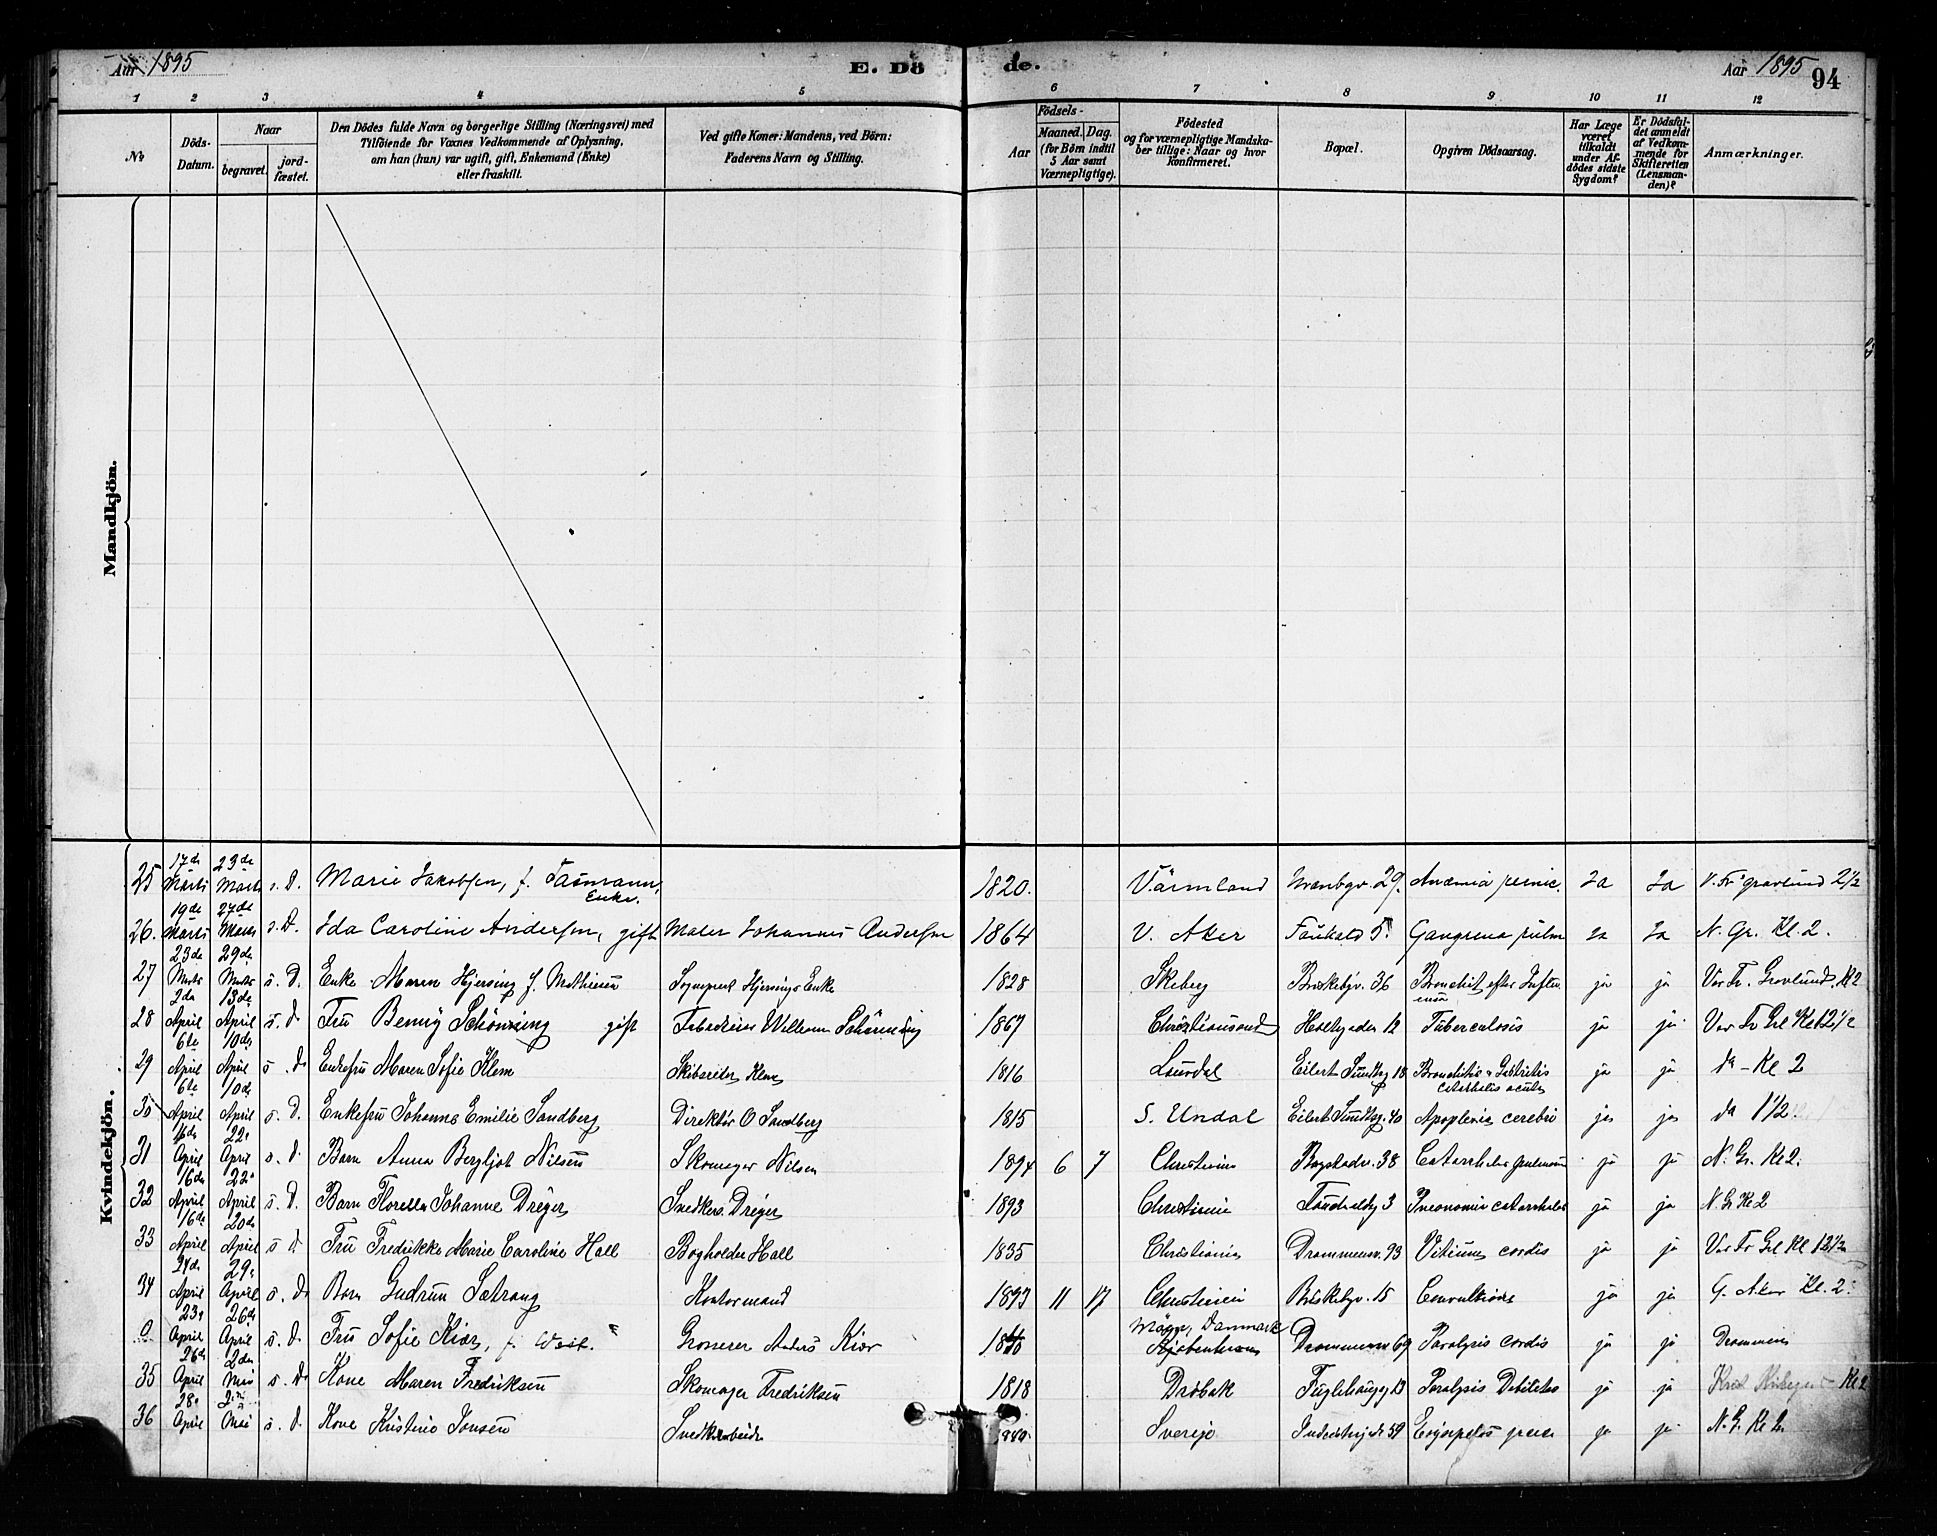 Aar 1895
E. Döde.
Aar 1895 94
1 2 3 4 5 6 7 8 9 10 11 12
No
Döds-Datum.
Naar begravet. jordfæstet.
Den Dödes fulde Navn og borgerlige Stilling (Næringsvei) med Tilföiende for Voxnes Vedkommende af Oplysning, om han (hun) var ugift, gift, Enkemand (Enke) eller fraskilt.
Ved gifte Koner: Mandens, ved Börn: Faderens Navn og Stilling.
Födsels-
Aar Maaned. Dag. (for Børn indtil 5 Aar samt Værnepligtige).
Födested og for værnepligtige Mandskaber tillige: Naar og hvor konfirmeret.
Bopæl.
Opgiven Dödsaarsag.
Har Læge været tilkaldt under Afdödes sidste Sygdom?
Er Dödsfaldet anmeldt af Vedkommende for Skifteretten (Lensmanden)?
Anmærkninger.
Mandkjön.
Kvindekjön.
25 17de Marts 23de Marts s. D. Marie Jakobsen, f. Tasmann, Enke. 1820. Värmland 29. Anæmia pernic. Ja Ja V. Fr. gravlund 2 1/2
26. 19de Marts 27de Marts s. D. Ida Caroline Andersen, gift Maler Johannes Andersen 1864 V. Aker 5. Gangrena pulm Ja Ja N. Gr. Kl. 2.
27 23de Marts 29de Marts s. D. Enke Maren Hjersing f. Mathiesen Hjersings Enke 1828 Skeberg Briskebyv. 36 Bronchit efter Influensa ja ja Vor Fr. Gravlund Kl 2
28 2de April 13de April s. D Fru Benny Schönning gift Schönning 1867 Christiansand 12 Tuberculosis ja ja Vor Fr Grl Kl 12 1/2
29 6te April 10de April s. D. Enkefru Maren Sofie Klem Skibsreder Klem 1816 Eilert Sundtsg 18 Bronchitis & Gastritis catarrhalis acuta ja ja do - Kl 2
30 6te April 10de April s. D. Enkefru Johanne Emilie Sandberg Direktør O Sandberg 1815 S. Undal Eilert Sundtsg. 40 Apoplexia cerebri ja ja do 1 1/2
31 16de April 22. April s. D. Barn Anna Bergljot Nilsen Skomager Nilsen 1894 6 7 Christiania Bogstadv. 38 ja ja N. Gr. Kl 2.
32 16de April 22. April s. D. Barn Florella Johanne Dreyer Snedker Dreyer 1893 Christiania 3 Pneonomia catarrhalis ja ja N. G. Kl 2
33 16de April 20de April s D Fru Fredrikke Marie Caroline Hall Bogholder Hall 1835 Christiania Drammensv. 93 Vitium cordis ja ja Vor Fr Grl Kl 12 1/2
34 24de April 29. April s. D. Barn Gudrun Sætrang Kontormand 1893 11 17 Christiania Briskebyv. 15 Convultions ja ja G. Aker Kl. 2.
0 23. April 26de April s. D. Fru Sofie Kiær, f. West. Grosserer Anders Kiær Danmark Kjøbenhavn Drammensv 69 Paralysis cordis ja ja Drammen
35 26de April 2den Mai s. D. Kone Maren Fredriksen Skomager Fredriksen 1818 Drøbak Fuglehaugg 13 Paralysis Debilitas ja ja Kl 2
36 28. April 2. Mai s. D. Kone Kristine Jonsen Snedkerarbeider Sverige 59 ja ja N. G. Kl 2